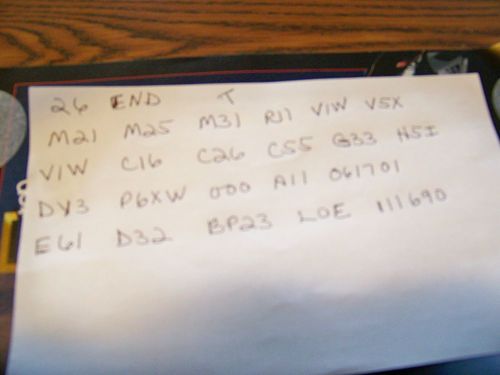 26 END T
M21 M25 M31 RJ1 V1W V5X
V1W C16 C26 C55 G33 H5I
DV3 P6XW 000 A11 061701
E61 D32 BP23 LOE 111690